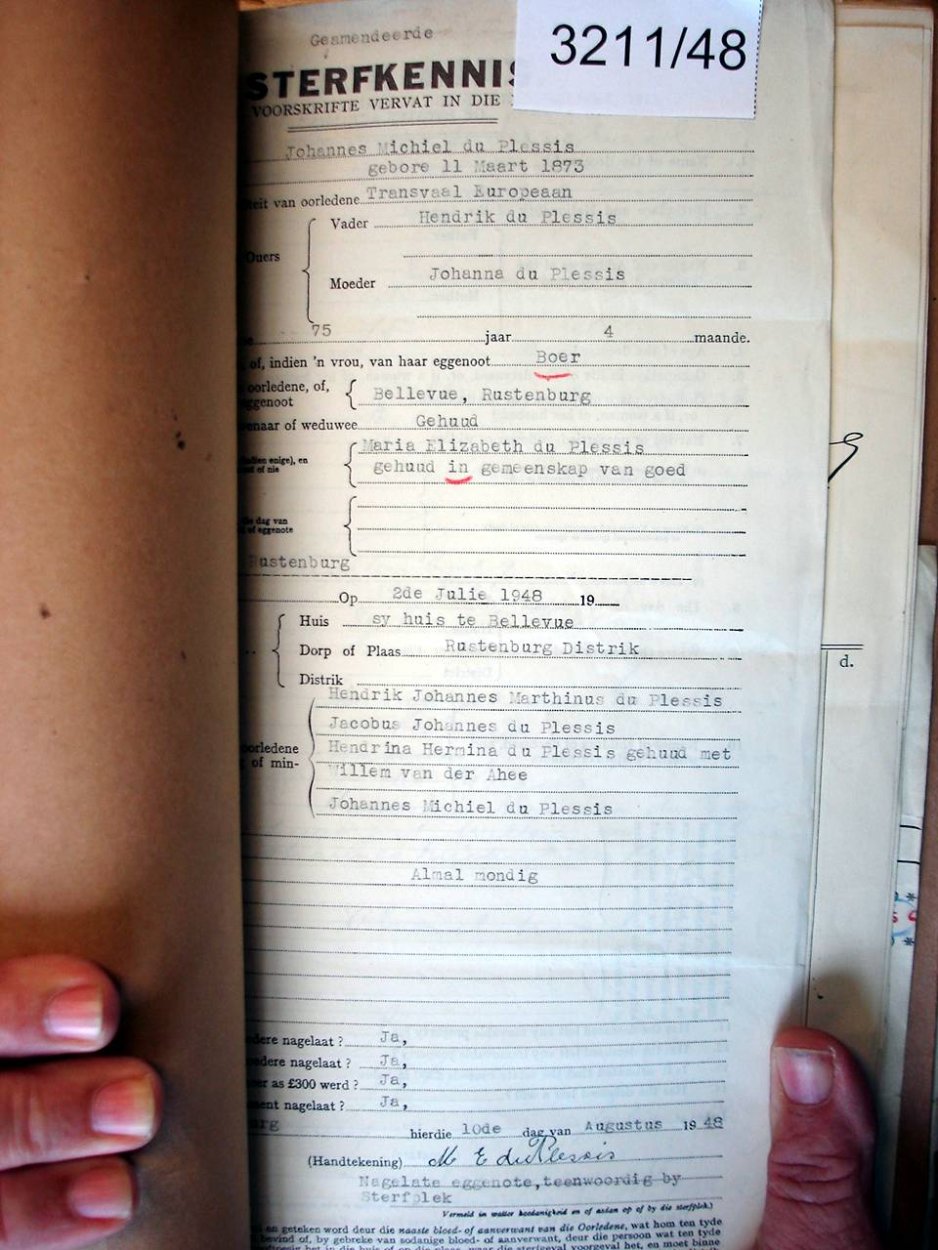 Geamendeerde
3211/48
STERFKENNIS
VOORSKRIFTE VERVAT IN DIE
Johannes Michiel du Plessis
gebore 11 Maart 1873
teit van oorledene Transvaal Europeaan
Vader Hendrik du Plessis
Ouers
Johanna du Plessis
Moeder
75 jaar 4 maande.
of, indien 'n vrou, van haar eggenoot Boer
oorledene, of,
ggenoot Bellevue, Rustenburg
enaar of weduwee Gehuud
Maria Elizabeth du Plessis
(indien enige), en
of nie
gehuud in gemeenskap van goed
die dag van
of eggenote
Rustenburg
Op 2de Julie 1948 19
Huis sy huis te Bellevue
Dorp of Plaas Rustenburg Distrik
Distrik
Hendrik Johannes Marthinus du Plessis
Jacobus Johannes du Plessis
oorledene Hendrina Hermina du Plessis gehuud met
of min- Willem van der Ahee
Johannes Michiel du Plessis
Almal mondig
dere nagelaat ? Ja,
edere nagelaat ? Ja,
er as £300 werd ? Ja,
ment nagelaat ? Ja,
urg hierdie 10de dag van Augustus 19 48
(Handtekening) M E du Plessis
Nagelate eggenote, teenwoordig by
Sterfplek
Vermeld in watter hoedanigheid en of astan op of by die sterfplek.)
en geteken word deur die naaste bloed- of aanverwant van die Oorledene, wat hom ten tyde
bevind of, by gebreke van sodanige bloed- of aanverwant, deur die persoon wat ten tyde
het in die huis of op die plaas, waar die sterfgeval voorgeval het, en moet binne
d.